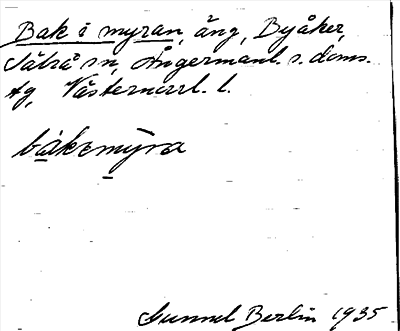 Bak i myran, äng, Byåker,
Sätrå sn, Ångermanl. s. doms.
tg, Västernorrl. l.
bakemyra
Gunnel Berlin 1935